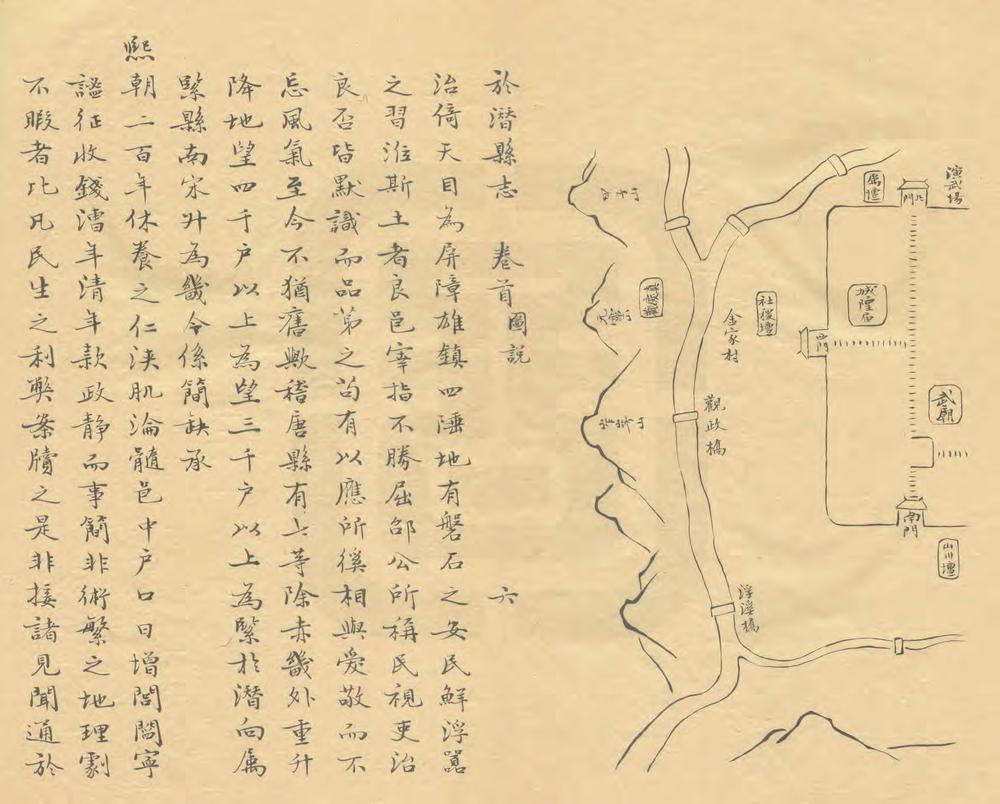 演武場
北門
厲壇
城隍廟
社稷壇
西門
武廟
南門
山川壇
金家村
觀政橋
浮溪橋
於潛縣志 卷首圖說 六
治倚天目為屏障雄鎮四陲地有磐石之安民鮮浮囂
之習涖斯土者良邑宰指不勝屈邵公所稱民視吏治
良否皆默識而品第之苟有以應所徯相與愛敬而不
忘風氣至今不猶舊歟稽唐縣有六等除赤畿外重升
降地望四千戶以上為望三千戶以上為緊於潛向屬
緊縣南宋升為畿今係簡缺承
熙朝二百年休養之仁浹肌淪髓邑中戶口日增閭閻寧
謐征收錢漕年清年款政靜而事簡非術繁之地理劇
不暇者比凡民生之利弊案牘之是非接諸見聞通於